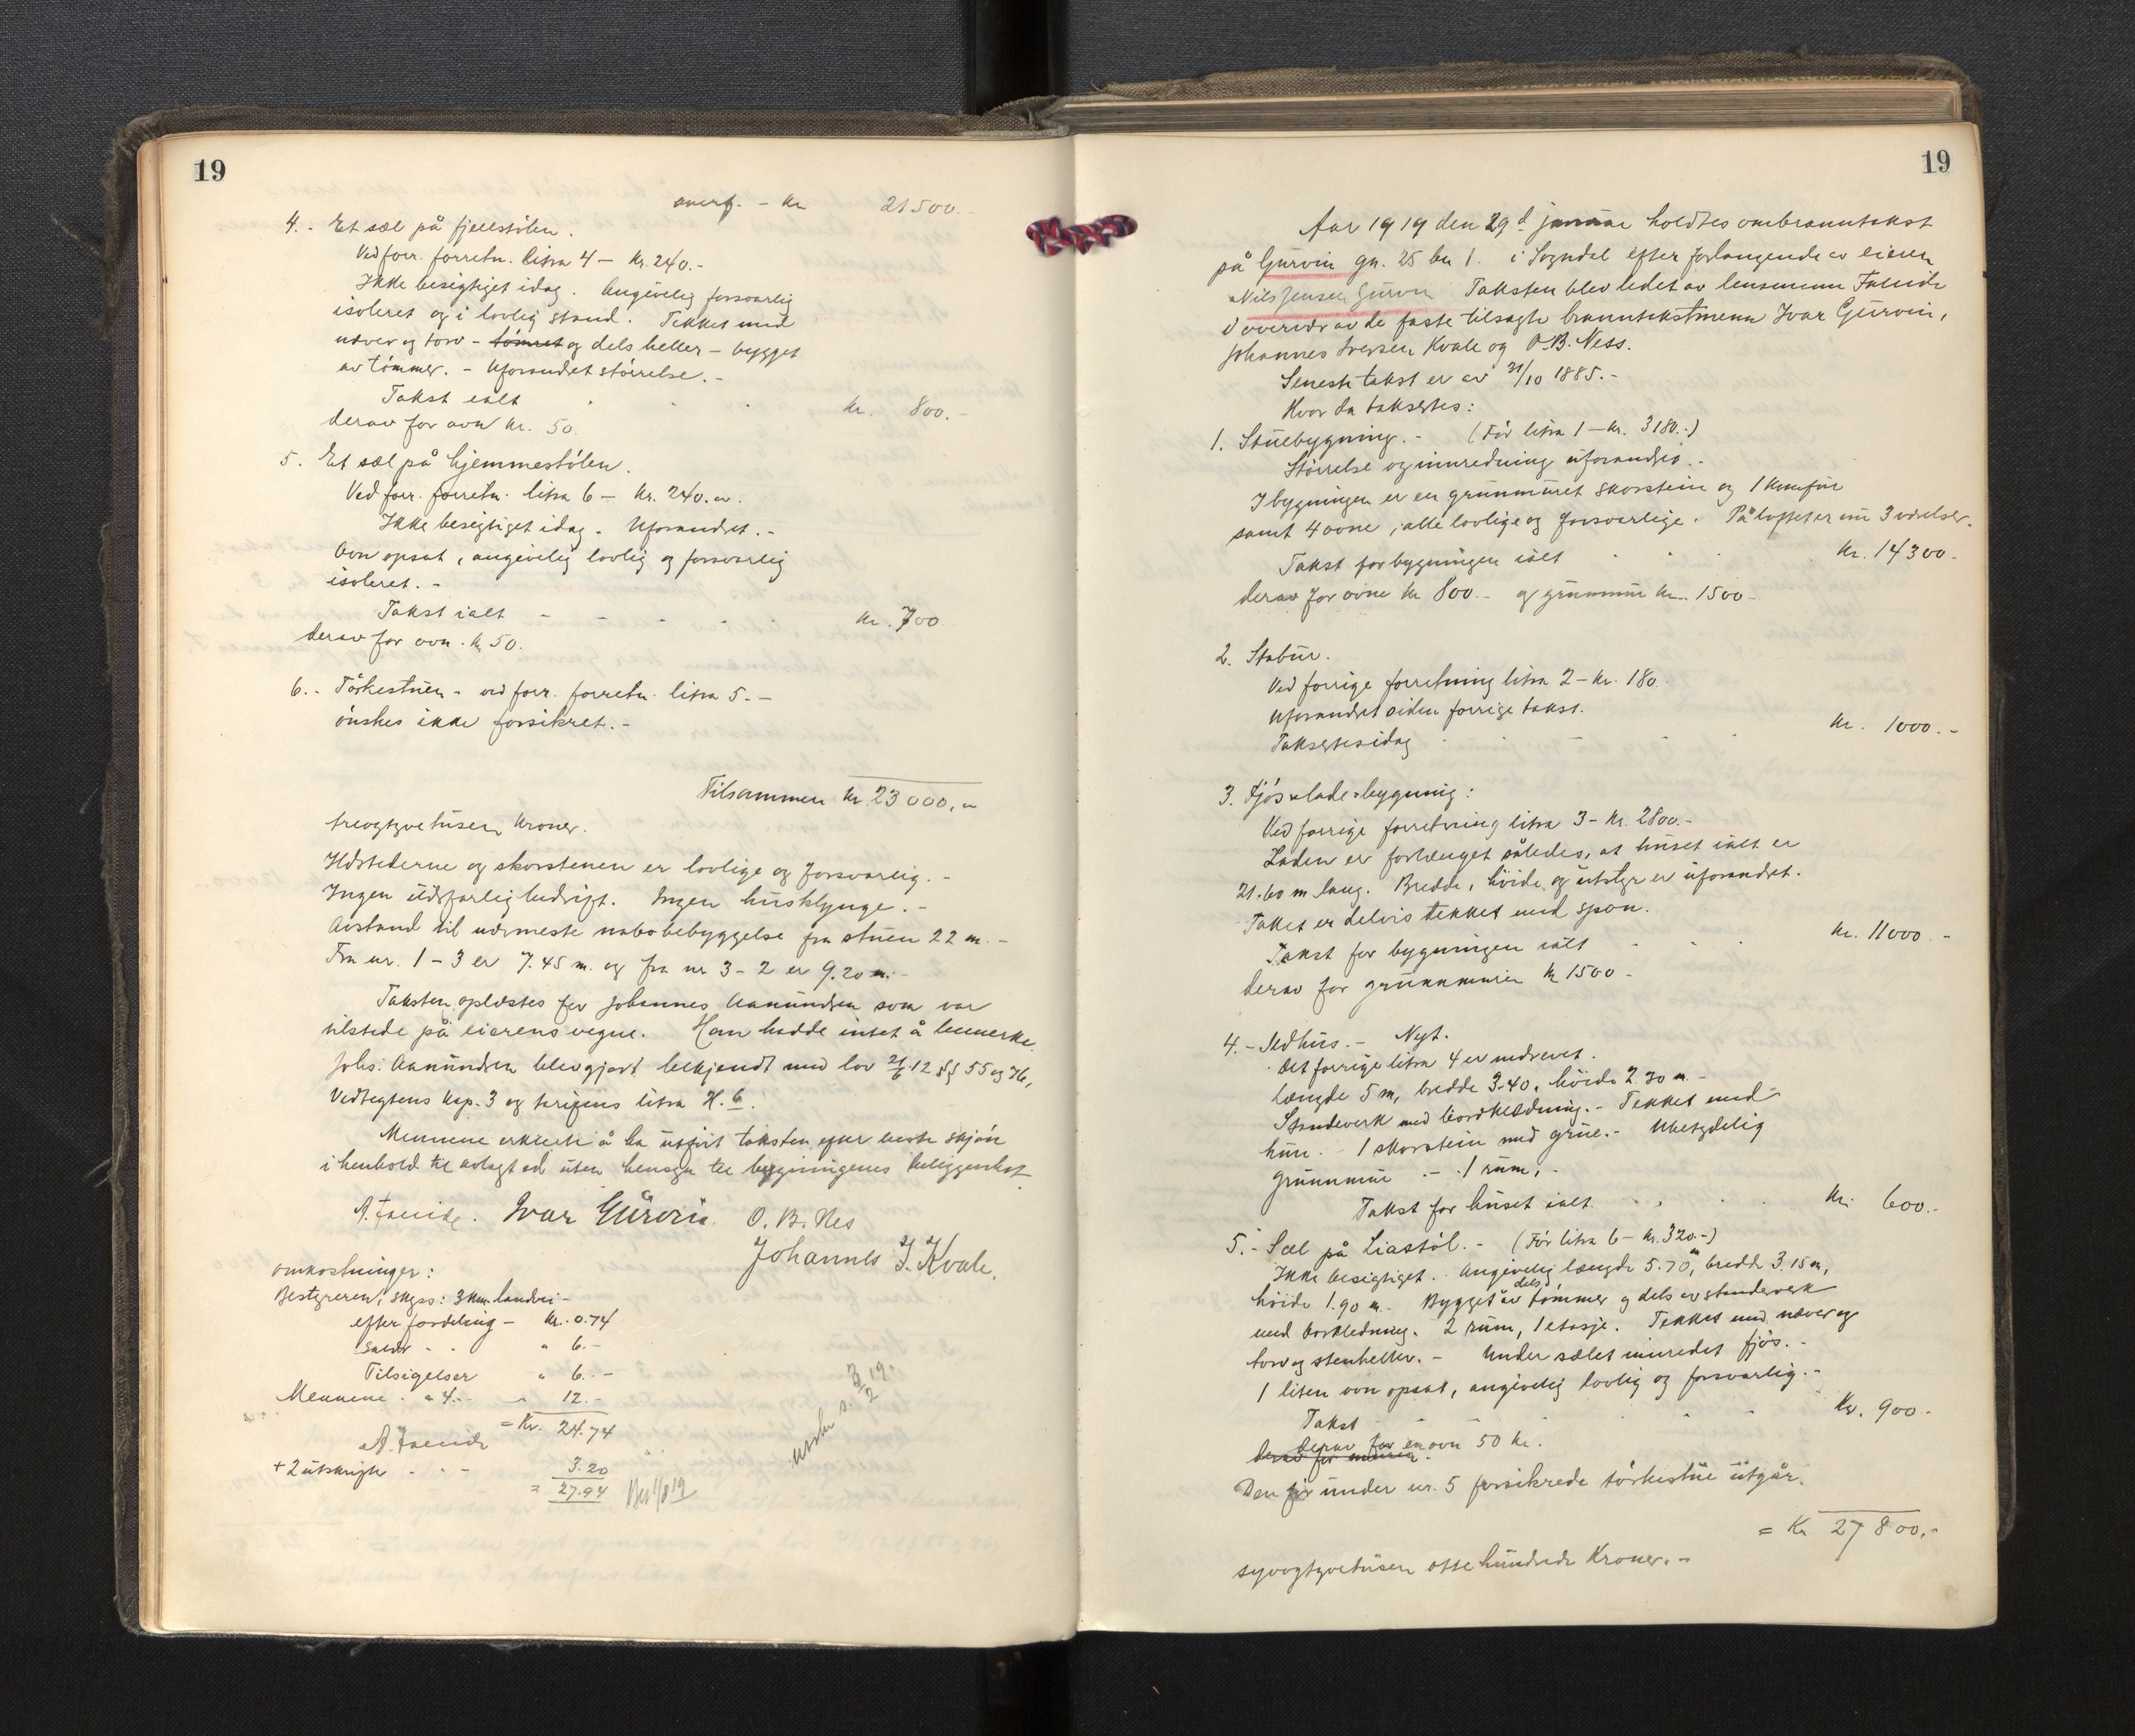 19
overf. - kr 21500.-
4.- Et sæl på fjellstölen.
Ved forr. forretn. litra 4 - kr. 240.-
Ikke besigtiget idag. Angivelig forsvarlig
isoleret og i lovlig stand. Tekket med
næver og torv - tömret og dels heller - bygget
av tömmer. - Uforandret störrelse.-
Takst ialt . . . kr. 800.-
derav for ovn kr. 50.
5. Et sæl på hjemmestölen.
Ved forr. forretn. litra 6 - kr. 240.-
Ikke besigtiget idag. Uforandret.-
Ovn opsat, angivelig lovlig og forsvarlig
isoleret.-
Takst ialt - - - - . kr. 700
derav for ovn. kr 50.
6.- Törkestuen - ved forr. forretn. litra 5.-
önskes ikke forsikret.-
Tilsammen kr. 23000,-
treogtyvetusen kroner.
Ildstederne og skorstenen er lovlige og forsvarlig.-
Ingen ildsfarlig bedrift. Ingen husklynge.-
Avstand til nærmeste nabobebyggelse fra stuen 22 m.-
Fra nr. 1 - 3 er 7.45 m. og fra nr 3 - 2 er 9.20 m.-
Taksten oplæstes for Johannes Aamundsen som var
tilstede på eierens vegne. Han hadde intet å bemerke.
Johs. Aamundsen blev gjort bekjendt med lov 21/6 12 §§ 55 og 76,
Vedtegtens kap. 3 og tarifens litra H. 6.
Mennene erklærte å ha utfört taksten efter beste skjön
i henhold til avlagt ed uten hensyn til bygningenes beliggenhet.
A. Falnide. Ivar Gurvin. O. B. Nes
Johannes I. Kvale.
Omkostninger:
Bestyreren, skyss: 3 km. landvei -
efter fordeling - kr. 0.74
Salær - - " 6.-
Tilsigelser " 6.-
Mennene . à 4.- " 12.-
= Kr. 24.74
+ 2 utskrifter - - - 3.20
= 27.94
19
Aar 1919 den 29d januar holdtes ombranntakst
på Gurvin gn. 25 bn 1. i Sogndal efter forlangende av eieren
Nils Jensen Gurvin Taksten blev ledet av lensmann Falnide
i overvær av de faste tilsagte branntakstmenn Ivar Gurvin,
Johannes Iversen Kvale og O. B. Ness.
Seneste takst er av 31/10 1885.-
Hvor da taksertes:
1. Stuebygning.- (För litra 1 - kr. 3180.-)
Störrelse og innredning uforandret.-
I bygningen er en grunnmuret skorstein og 1 komfur
samt 4 ovne, alle lovlige og forsvarlige. På loftet er nu 3 værelser.
Takst for bygningen ialt . . . kr. 14300.-
derav for ovne kr 800.- og grunnmur kr. 1500-
2. Stabur.
Ved forrige forretning litra 2 - kr. 180.
Uforandret siden forrige takst.
Taksertes idag - - - kr. 1000.-
3. Fjös & lade-bygning:
Ved forrige forretning litra 3 - kr. 2800.-
Laden er forlænget således, at huset ialt er
21.60 m lang. Bredde, höide og utstyr er uforandret.
Taket er delvis tekket med spon.
Takst for bygningen ialt - - . kr. 11000.-
derav for grunnmuren kr 1500 -
4.- Ildhus.- Nyt.
Det forrige litra 4 er nedrevet.
Længde 5 m, bredde 3.40, höide 2.30 m.-
Standerverk med bordklædning.- Tekket med
hun.- 1 skorstein med grue.- Ubetydelig
grunnmur.- 1 rum.-
Takst for huset ialt . . . kr. 600.-
5.- Sæl på Liastöl.- (För litra 6 - kr. 320.-)
Ikke besigtiget. Angivelig længde 5.70 m, bredde 3.15 m,
höide 1.90 m.- Bygget dels av tömmer og dels av standerverk
med bordkledning. 2 rum, 1 etasje. Tekket med næver og
torv og stenheller.- Under sælet innredet fjös.-
1 liten ovn opsat, angivelig lovlig og forsvarlig.-
Takst - - - - Kr. 900.-
derav for en ovn 50 kr.
Den för under nr. 5 forsikrede törkestue utgår.
= Kr 27800.-
syvogtyvetusen otte hundrede Kroner.-